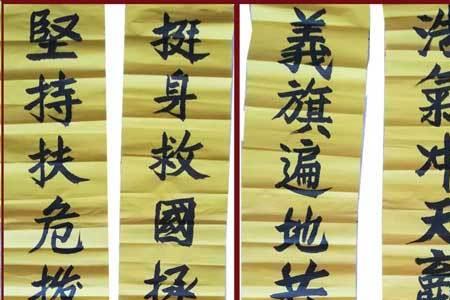 浩氣冲天
義旗遍地
挺身救國拯
堅持扶危撥